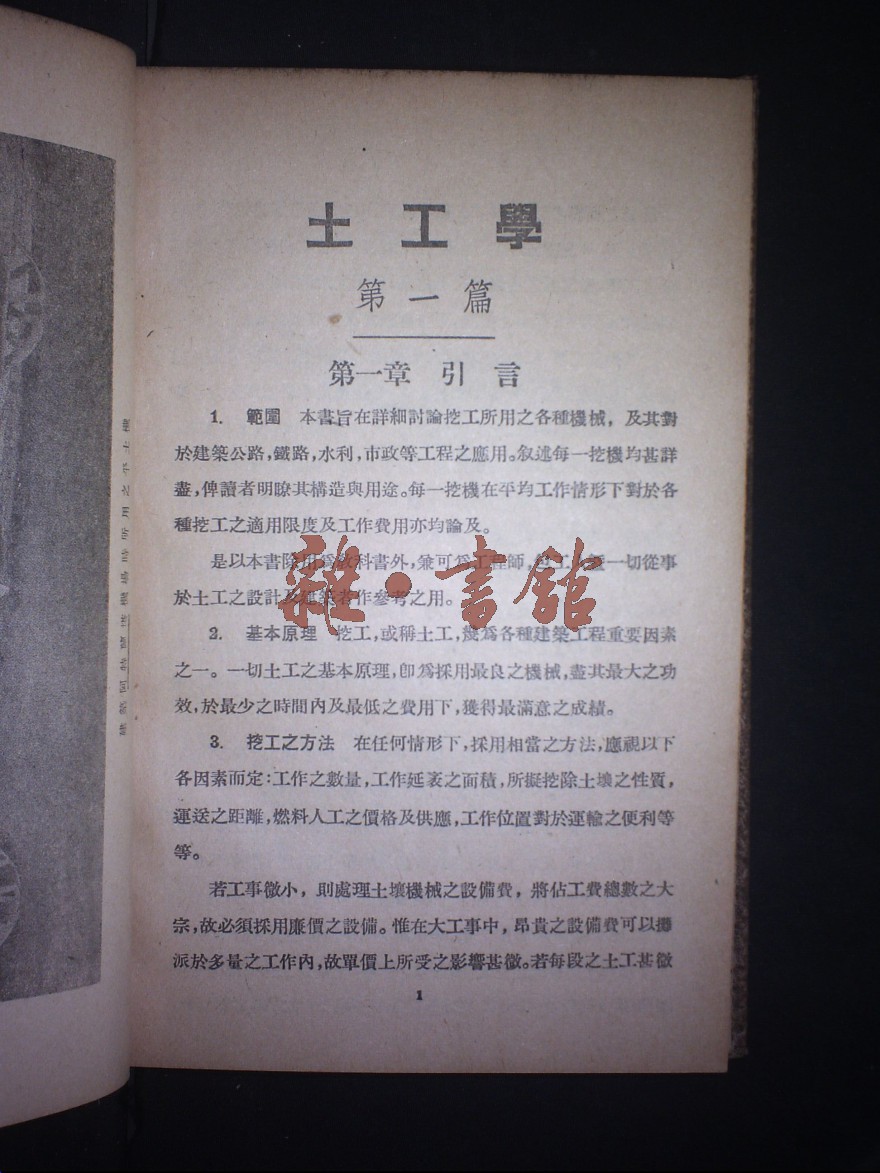 土工學
第一篇
第一章 引言
1. 範圍 本書旨在詳細討論挖工所用之各種機械，及其對
於建築公路，鐵路，水利，市政等工程之應用。叙述每一挖機均甚詳
盡，俾讀者明瞭其構造與用途。每一挖機在平均工作情形下對於各
種挖工之適用限度及工作費用亦均論及。
是以本書除用爲教科書外，兼可爲工程師，工一切從事
於土工之設計及建築者作參考之用。
雜·書館
2. 基本原理 挖工，或稱土工，爲各種建築工程重要因素
之一。一切土工之基本原理，卽爲採用最良之機械，盡其最大之功
效，於最少之時間內及最低之費用下，獲得最滿意之成績。
3. 挖工之方法 在任何情形下，採用相當之方法，應視以下
各因素而定：工作之數量，工作延袤之面積，所擬挖除土壤之性質，
運送之距離，燃料人工之價格及供應，工作位置對於運輸之便利等
等。
若工事微小，則處理土壤機械之設備費，將佔工費總數之大
宗，故必須採用廉價之設備。惟在大工事中，昂貴之設備費可以攤
派於多量之工作內，故單價上所受之影響甚微。若每段之土工甚微
1